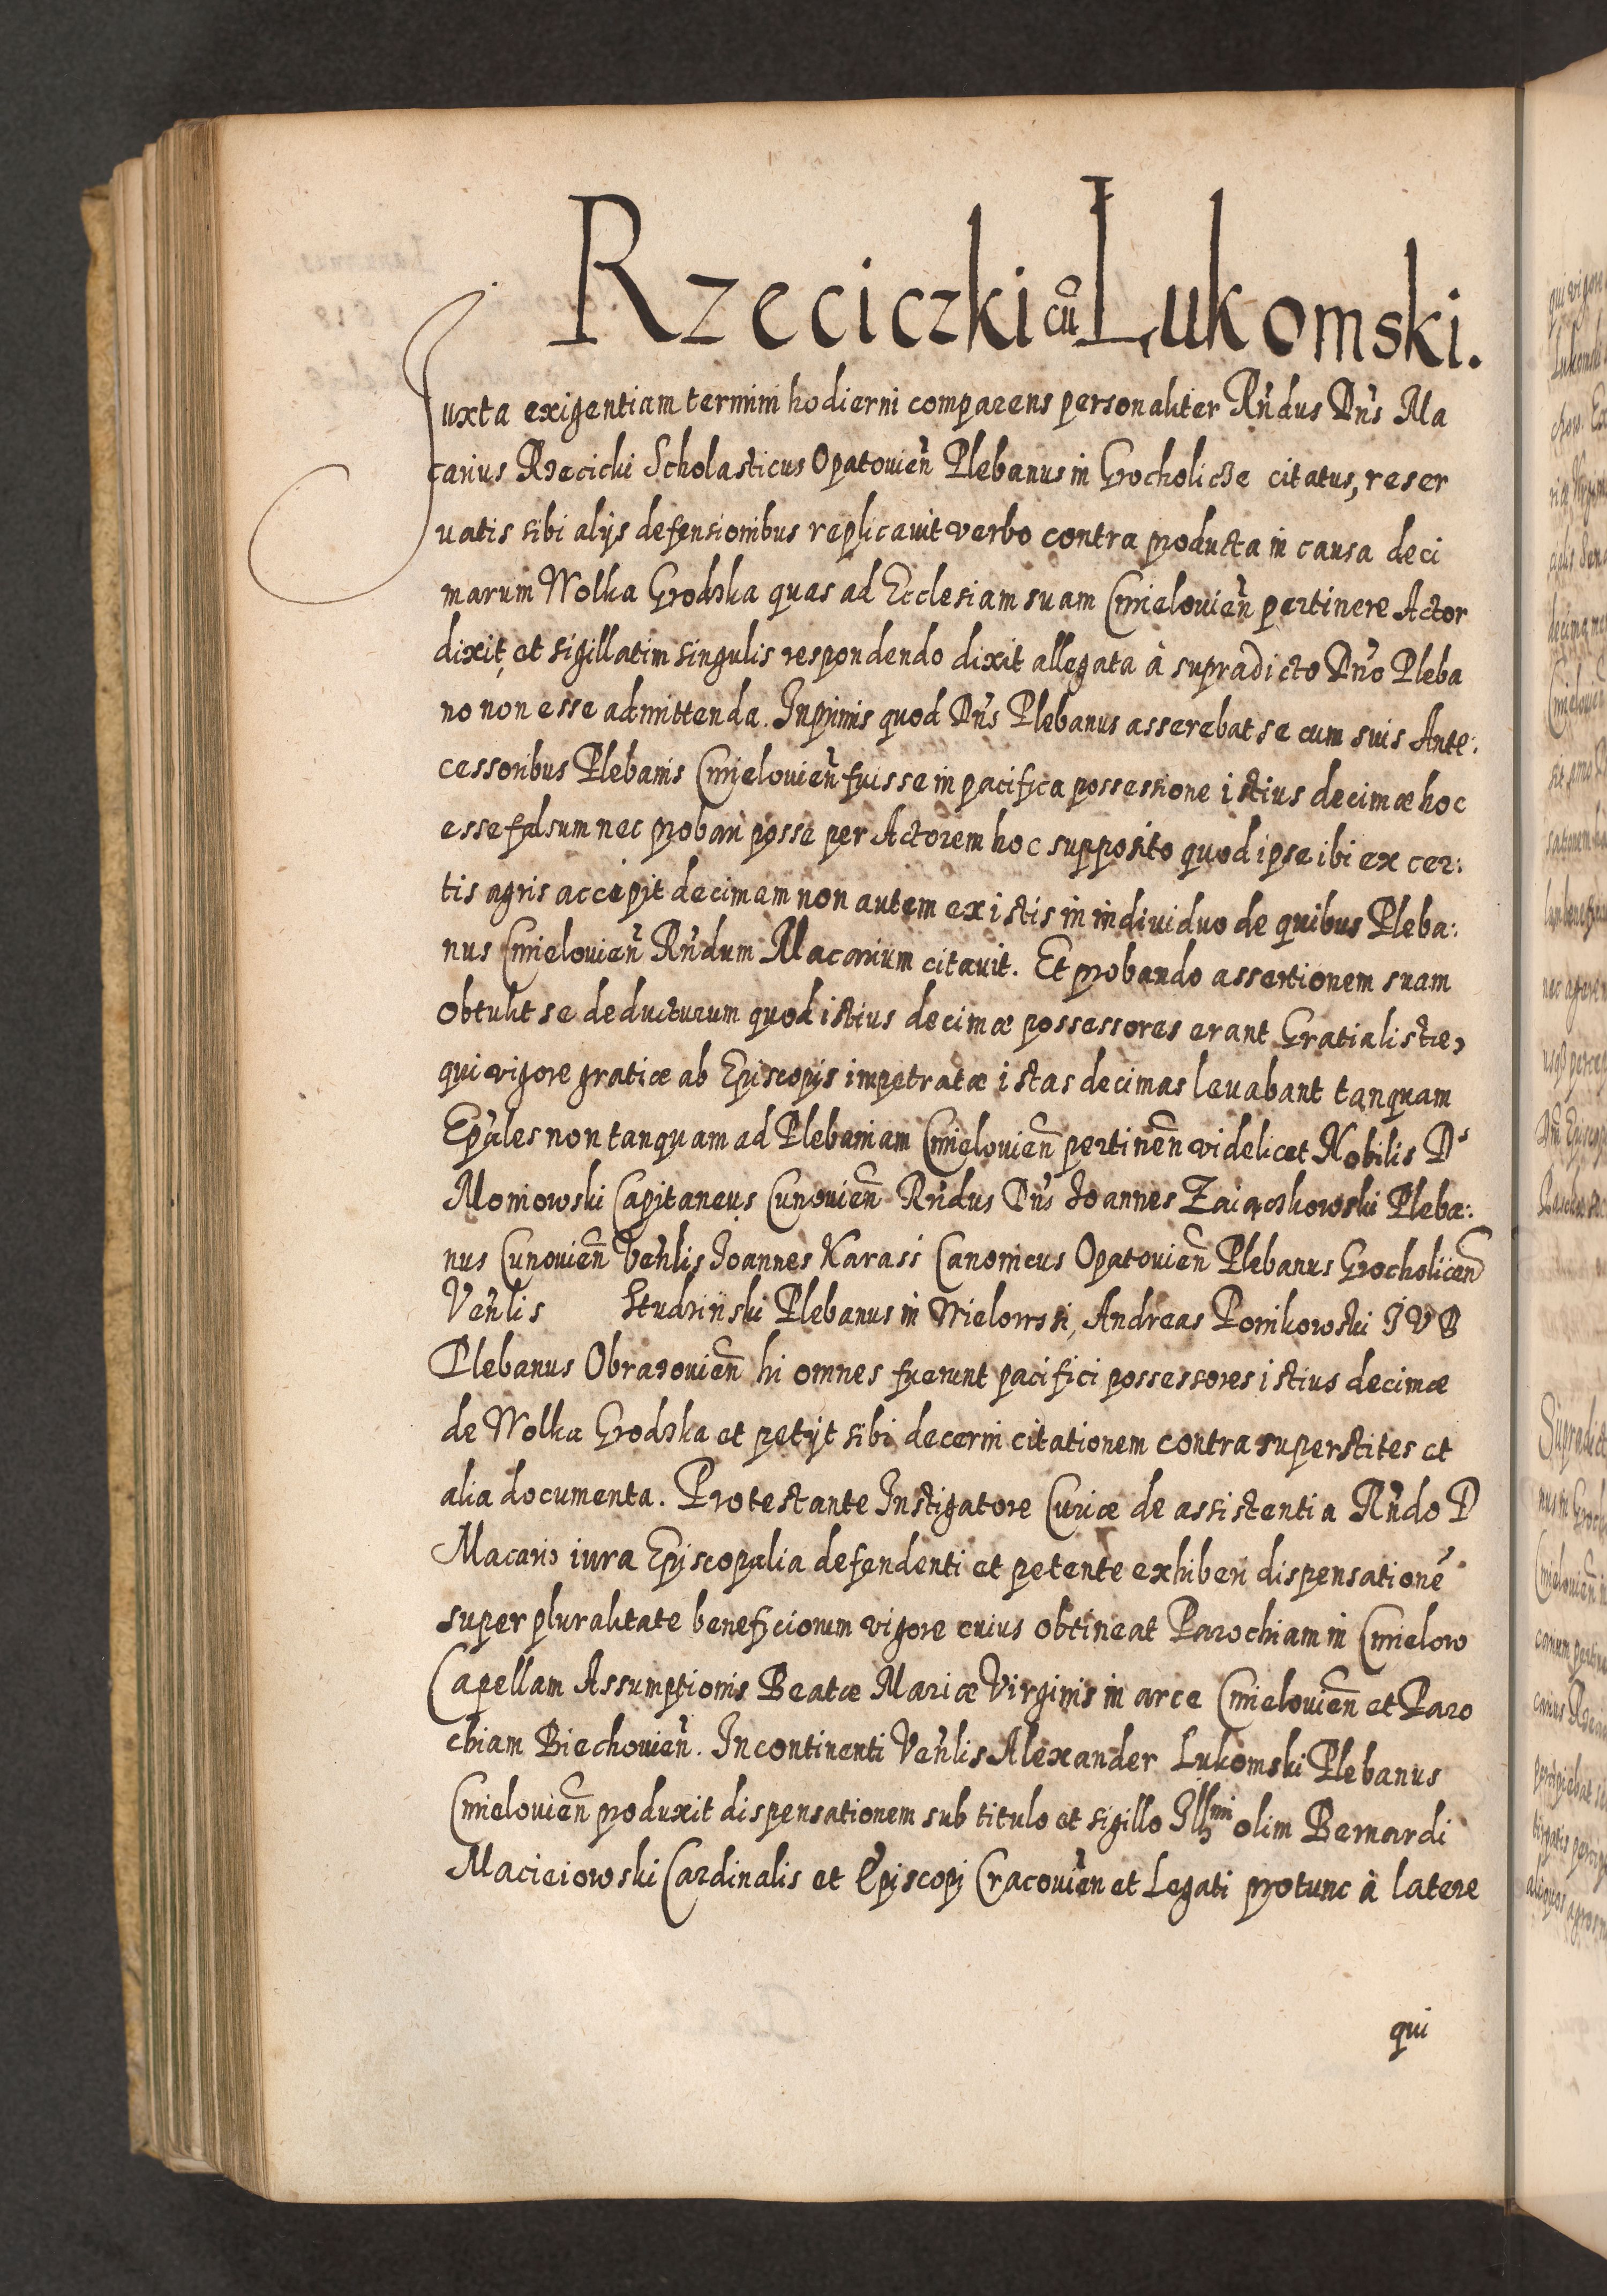 Rzeciczki cũ Lukomski.
Juxta exigentiam termini hodierni comparens personaliter Rñdus Dñs Ma
carius Rzecicki Scholasticus Opatovieñ Plebanus in Grocholicze citatus, reser
uatis sibi alijs defensionibus replicauit verbo contra producta in causa deci
marum Wolka Grodzka quas ad Ecclesiam suam Cmielouieñ pertinere Actor
dixit, et sigillatim singulis respondendo dixit allegata à supradicto Dño Pleba
no non esse admittenda. Inprimis quod Dñs Plebanus asserebat se cum suis Ante:
cessoribus Plebanis Cmielouieñ fuisse in pacifica possessione istius decimæ hoc
esse falsum nec probari posse per Actorem hoc supposito quod ipse ibi ex cer:
tis agris accepit decimam non autem ex istis in individuo de quibus Pleba:
nus Cmielouieñ Rñdum Macarium citauit. Et probando assertionem suam
obtulit se deducturum quod istius decimæ possessores erant Gratialistæ,
qui vigore gratiæ ab Episcopis impetratæ istas decimas leuabant tanquam
Epales non tanquam ad Plebaniam Cmielouieñ pertineñ videlicet Nobilis Ds
Moniowski Capitaneus Cunouieñ Rñdus Dñs Joannes Zaiączkowski Pleba:
nus Cunouieñ Veñlis Joannes Karasi Canonicus Opatouieñ Plebanus Grocholiceñ
Veñlis Studzinski Plebanus in Wielowsi, Andreas Ponikowski I V D
Plebanus Obrazouieñ hi omnes fuerunt pacifici possessores istius decimæ
de Wolka Grodzka et petijt sibi decerni citationem contra superstites et
alia documenta. Protestante Instigatore Curiæ de assistentia Rñdo D
Macario iura Episcopalia defendenti et petente exhiberi dispensationẽ
super pluralitate beneficiorum vigore cuius obtineat Parochiam in Cmielow
Capellam Assumptionis Beatæ Mariæ Virginis in arce Cmielouieñ et Paro
chiam Biechouieñ. Incontinenti Veñlis Alexander Lukomski Plebanus
Cmielouieñ produxit dispensationem sub titulo et sigillo Illmi olim Bernardi
Macieiowski Cardinalis et Episcopi Cracouieñ et Legati protunc à latere
qui